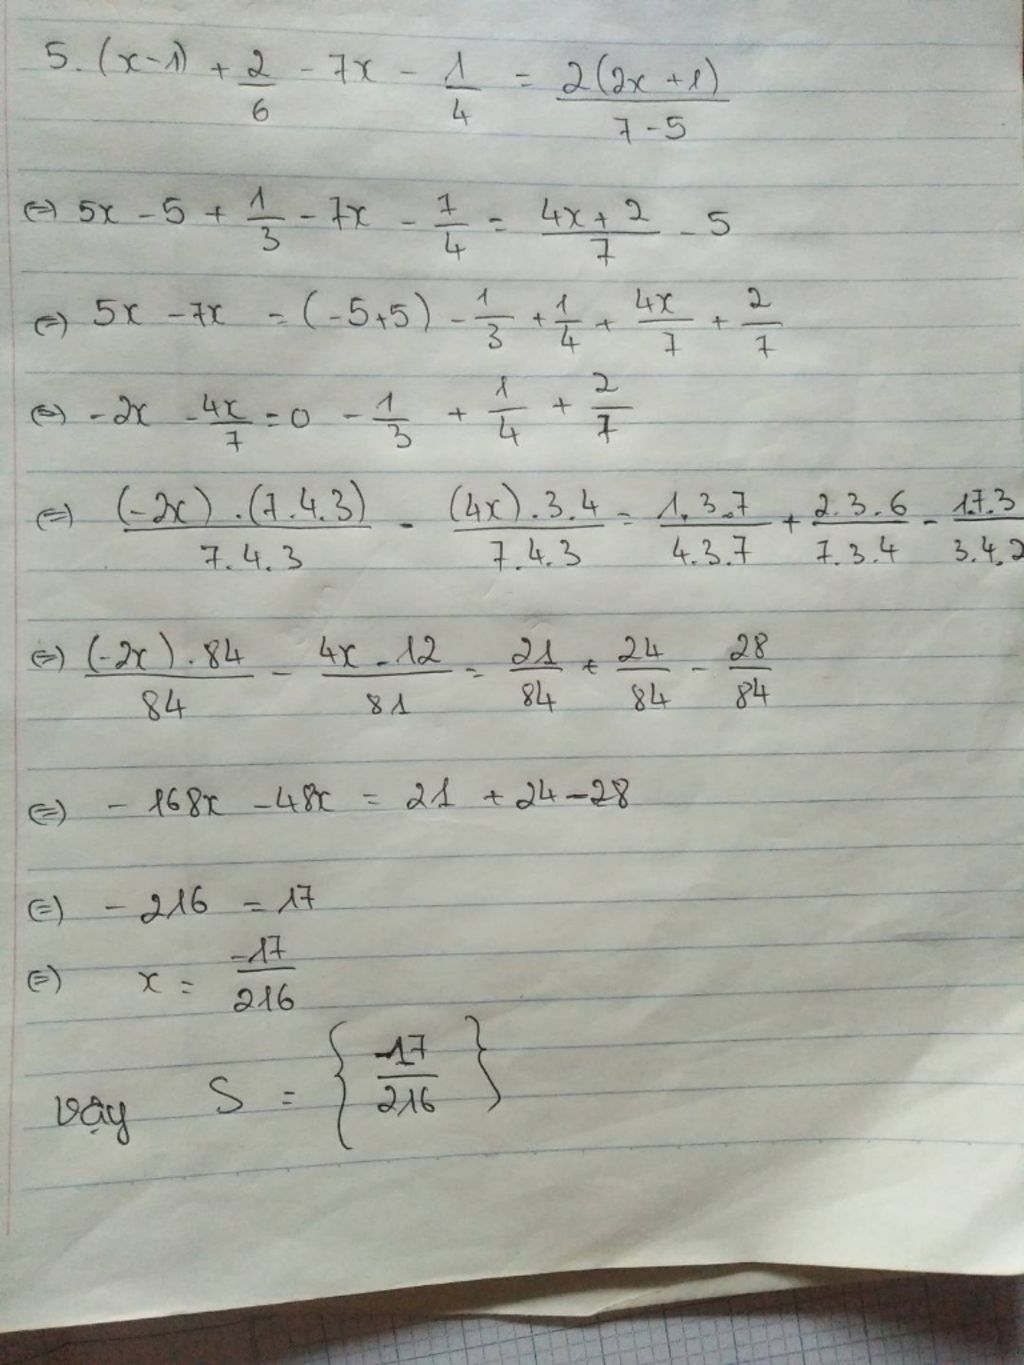 5.(x-1) + 2/6 - 7x - 1/4 = 2(2x+1)/7-5
(=) 5x - 5 + 1/3 - 7x - 7/4 = 4x+2/7 - 5
(=) 5x - 7x = (-5+5) - 1/3 + 1/4 + 4x/7 + 2/7
(=) -2x - 4x/7 = 0 - 1/3 + 1/4 + 2/7
(=) (-2x).(7.4.3)/7.4.3 - (4x).3.4/7.4.3 = 1.3.7/4.3.7 + 2.3.6/7.3.4 - 1.7.3/3.4.2
(=) (-2x).84/84 - 4x-12/81 = 21/84 + 24/84 - 28/84
(=) - 168x - 48x = 21 + 24 - 28
(=) - 216 = 17
(=) x = -17/216
vậy S = { -17/216 }